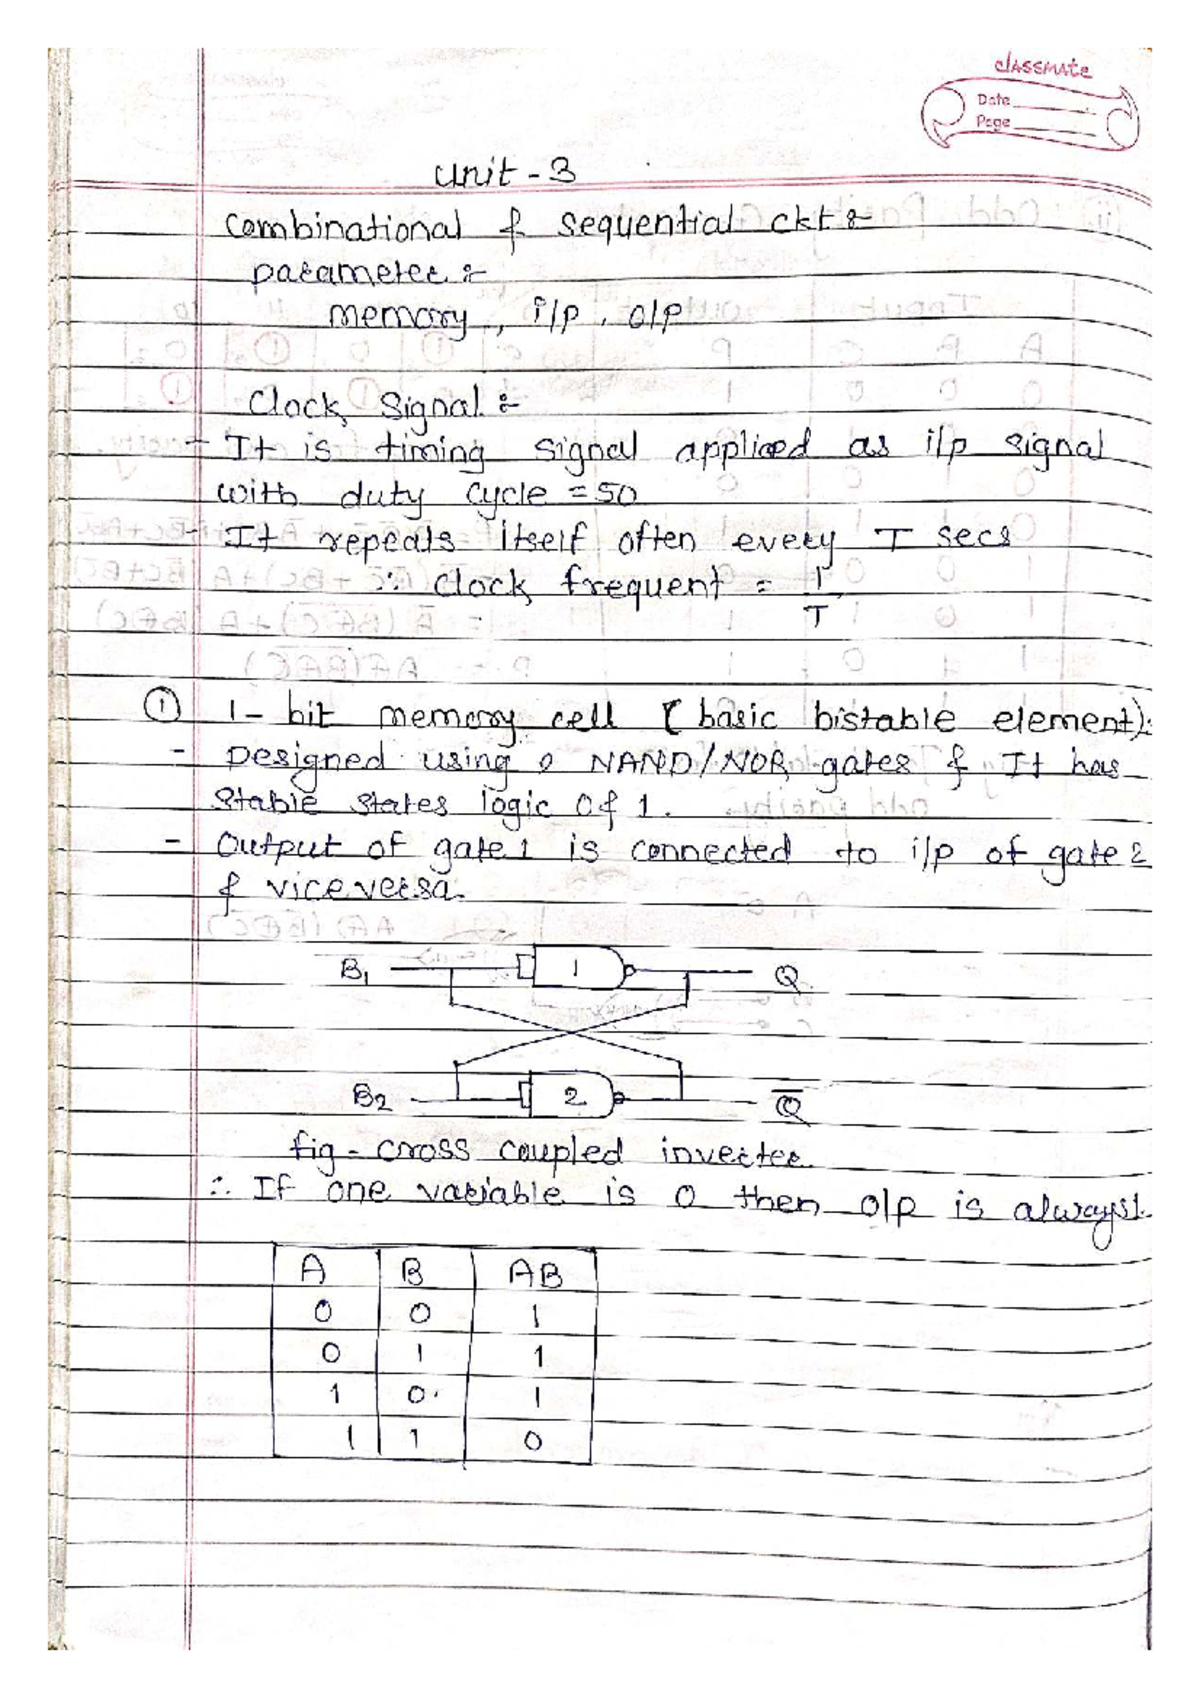 classmate
Date
Page
Unit - 3
Combinational & Sequential ckt :-
parameter :-
memory, i/p, o/p
Clock Signal :-
- It is timing signal applied as i/p signal
with duty cycle = 50
- It repeats itself often every T secs
∴ Clock frequent = 1/T
① 1-bit memory cell (basic bistable element):
- Designed using NAND/NOR gates & It has
stable states logic 0 & 1.
- Output of gate 1 is connected to i/p of gate 2
& viceversa.
B1 1 Q
B2 2 Q̅
fig - cross coupled inverter.
∴ If one variable is 0 then o/p is always 1.
A B AB
0 0 1
0 1 1
1 0 1
1 1 0